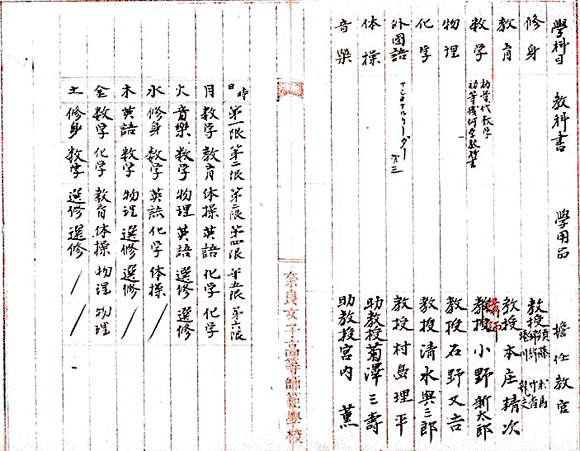 學科目 教科書 學用品 擔任教官
修身
教育 教授 本庄精次
数学 初等代数学 初等幾何学教科書 講師 教授 小野新太郎
物理 教授 石野又吉
化学 教授 清水與三郎
外國語 ナショナルリーダー 巻三 教授 村島理平
体操 助教授 菊澤三壽
音樂 助教授 宮内薫
奈良女子高等師範學校
日時 第一限 第二限 第三限 第四限 第五限 第六限
月 数学 教育 体操 英語 化学 化学
火 音樂 数学 物理 英語 選修 選修
水 修身 数学 英語 化学 体操 /
木 英語 数学 物理 選修 選修 /
金 数学 化学 教育 体操 物理 物理
土 修身 数学 選修 選修 / /